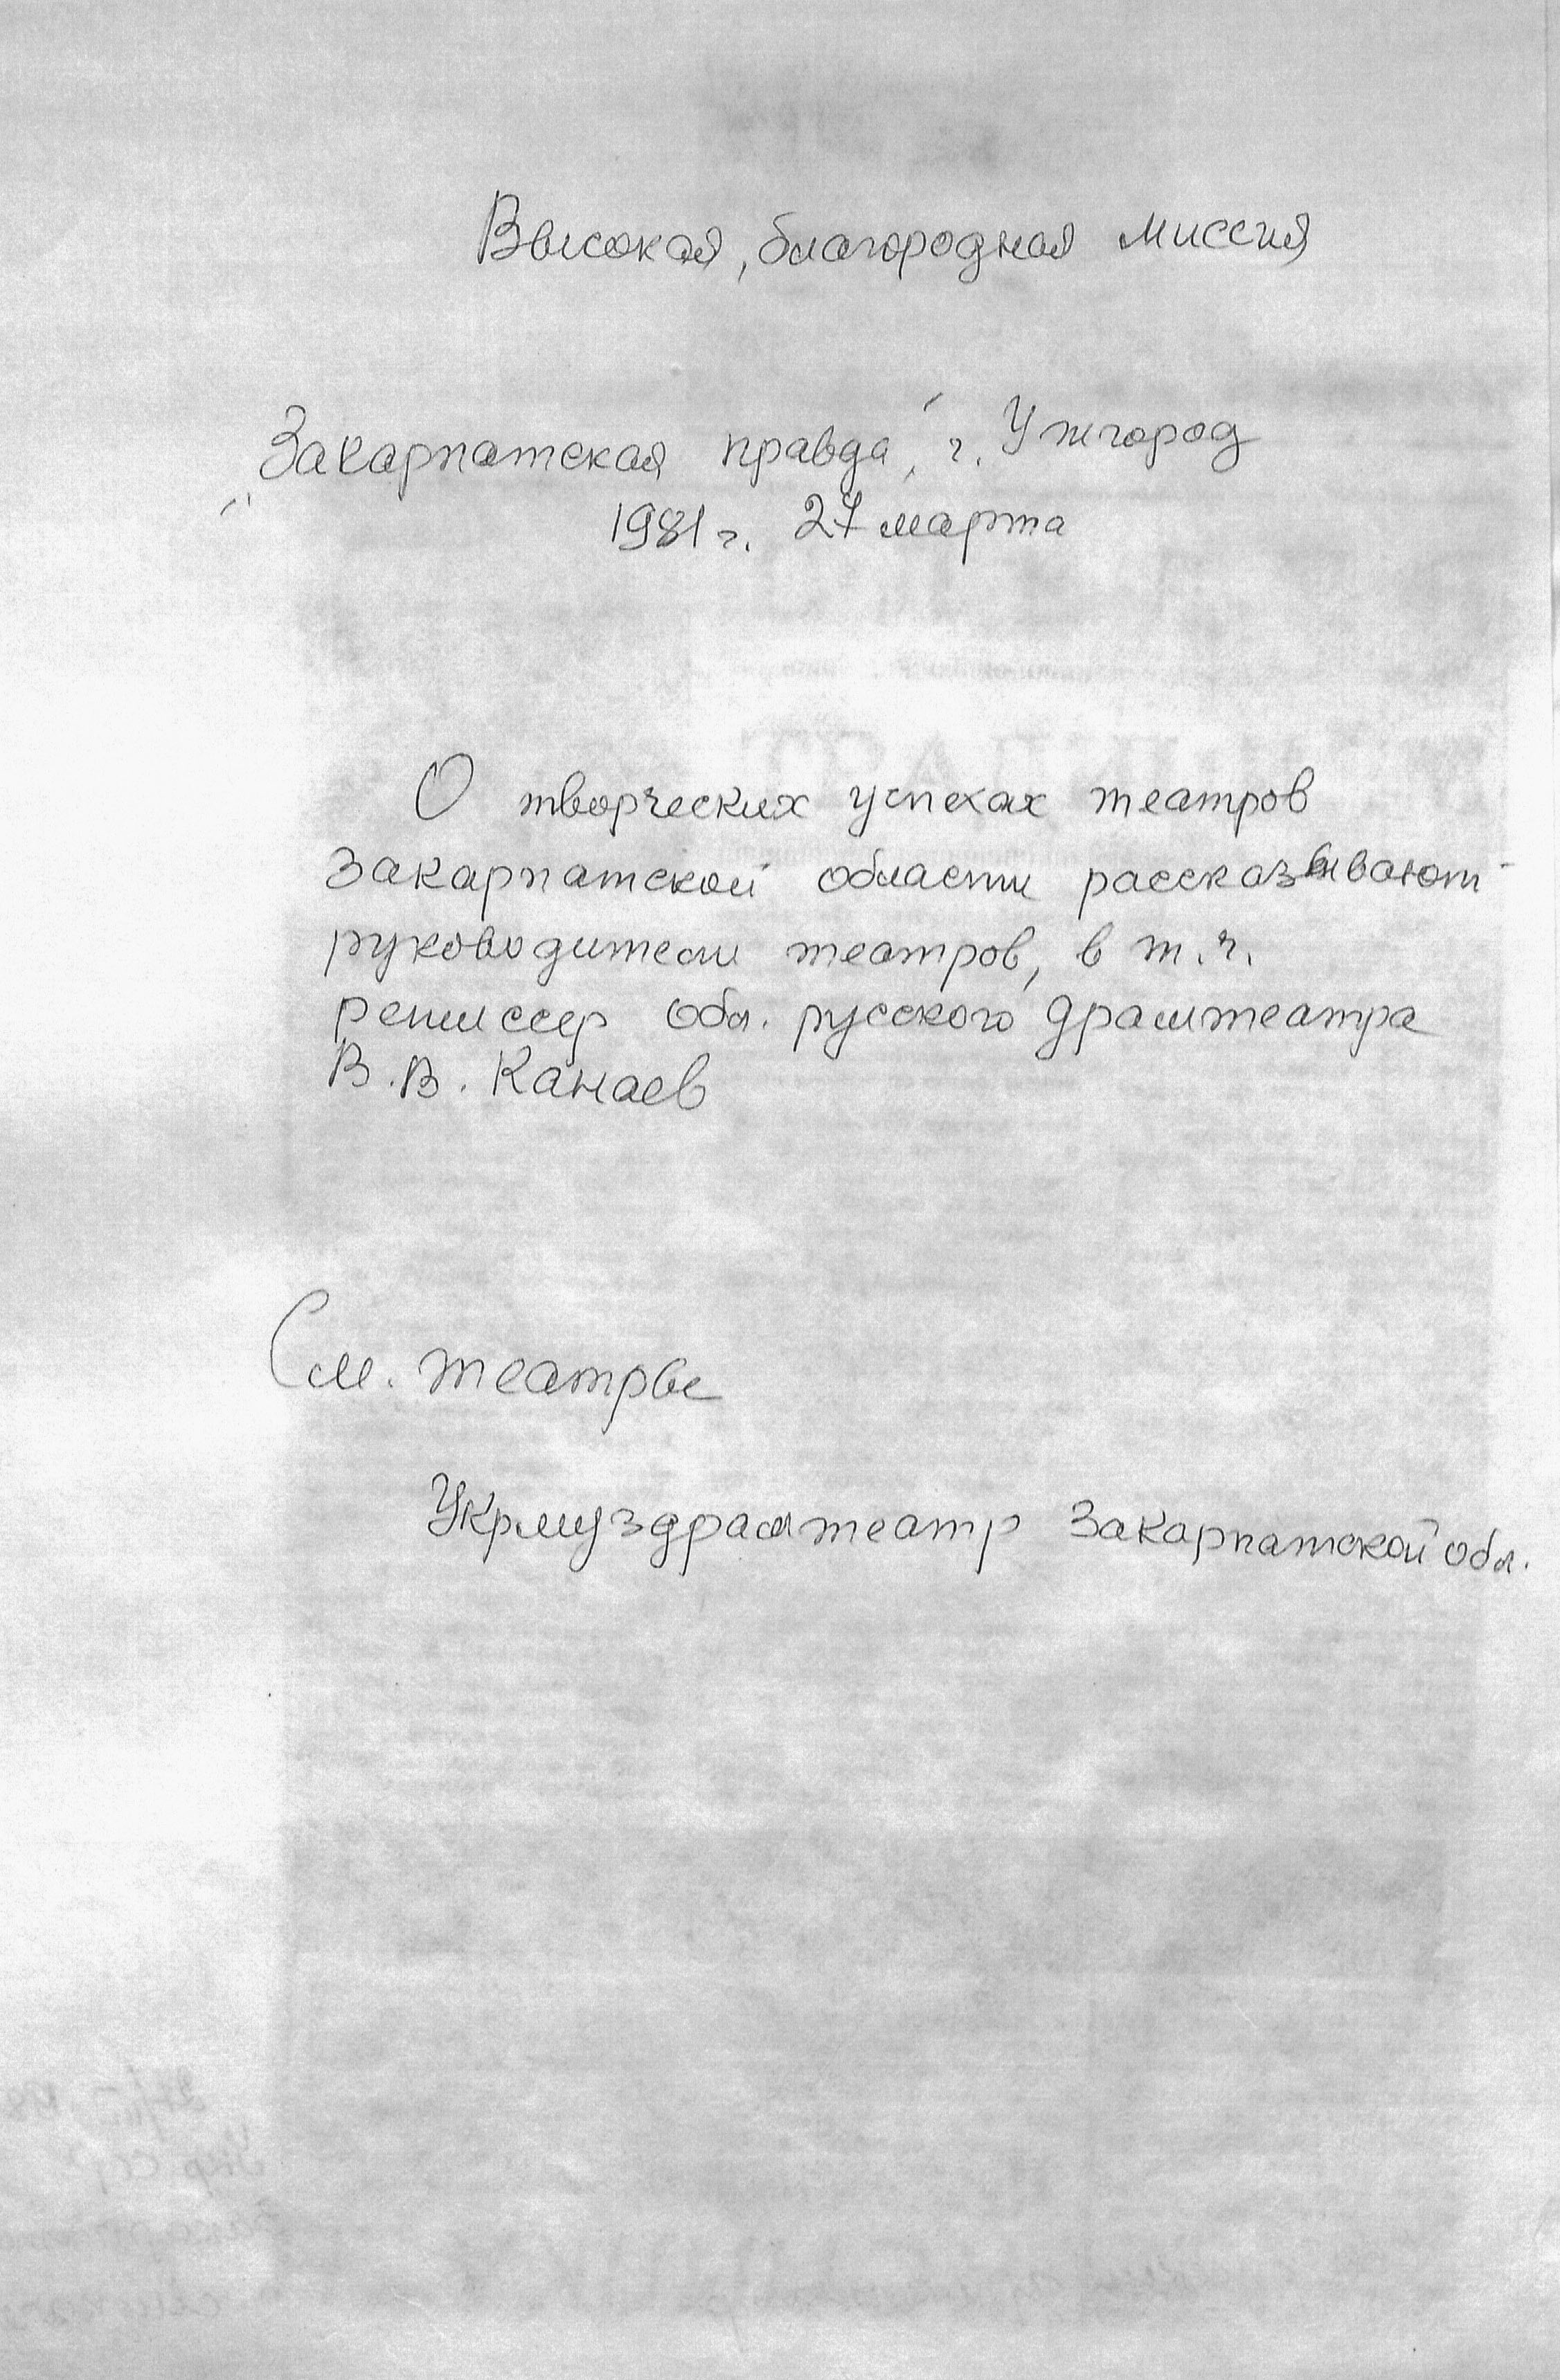 Высокая, благородная миссия
"Закарпатская правда", г. Ужгород
1981 г. 27 марта
О творческих успехах театров
Закарпатской области рассказывают
руководители театров, в т.ч.
режиссер обл. русского драмтеатра
В.В. Канаев
См. театры
Укрмуздрамтеатр Закарпатской обл.